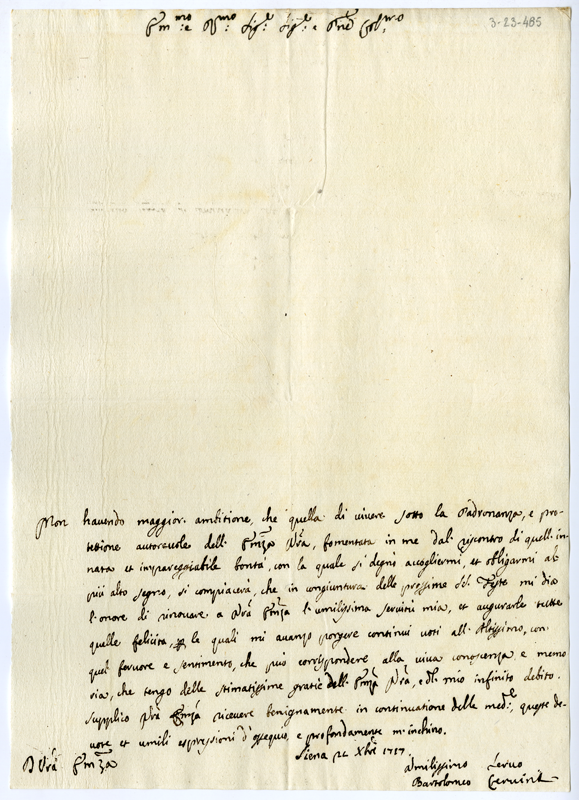 3-23-485
Em.mo e R.mo Sig.r Sig.r e P.ron Col.mo
Non havendo maggior ambitione, che quella di vivere sotto la Padronanza, e pro-
tettione autorevole dell' Em.za V.ra, fomentata in me dal riscontro di quell' in-
nata et impareggiabile bontà, con la quale si degnò accogliermi, et obligarmi al
più alto segno, si compiacerà, che in congiuntura delle prossime S.S. Feste mi dia
l'onore di rinovare a V.ra Em.za l'umilissima servitù mia, et augurarle tutte
quelle felicità, p le quali mi avanzo porgere continui voti all' Altissimo, con
quel fervore e sentimento, che può corrispondere alla viva conoscenza e memo
ria, che tengo delle stimatissime gratie dell' Em.za V.ra, e del mio infinito debito.
Supplico V.ra Em.za ricevere benignamente in continuatione delle med.e, queste de-
vote et umili espressioni d'ossequio, e profondamente m'inchino.
D V.ra Em.za
Siena 22 Xbre 1717
Umilissimo Servo
Bartolomeo Cervini